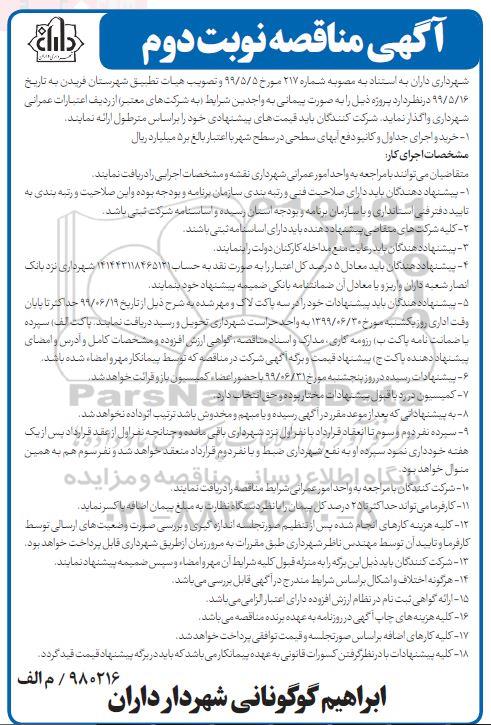 آگهی مناقصه نوبت دوم
داران
شهرداری داران به استناد به مصوبه شماره ۲۱۷ مورخ ۹۹/۵/۵ و تصویب هیات تطبیق شهرستان فریدن به تاریخ
۹۹/۵/۱۶ در نظر دارد پروژه ذیل را به صورت پیمانی به واجدین شرایط (به شرکت‌های معتبر) از ردیف اعتبارات عمرانی
شهرداری واگذار نماید. شرکت کنندگان باید قیمت‌های پیشنهادی خود را براساس متر طول ارائه نمایند.
۱- خرید و اجرای جداول و کانیو دفع آبهای سطحی در سطح شهر با اعتبار بالغ بر ۵ میلیارد ریال
مشخصات اجرای کار:
متقاضیان می‌توانند با مراجعه به واحد امور عمرانی شهرداری نقشه و مشخصات اجرایی را دریافت نمایند.
۱- پیشنهاد دهندگان باید دارای صلاحیت فنی و رتبه بندی سازمان برنامه و بودجه بوده و این صلاحیت و رتبه بندی به
تایید دفتر فنی استانداری و یا سازمان برنامه و بودجه استان رسیده و اساسنامه شرکت ثبتی باشد.
۲- کلیه شرکت‌های متقاضی پیشنهاد دهنده باید دارای اساسنامه ثبتی باشند.
۳- پیشنهاد دهندگان باید رعایت منع مداخله کارکنان دولت را بنمایند.
۴- پیشنهاد دهندگان باید معادل ۵ درصد کل اعتبار را به صورت نقد به حساب ۱۴۱۴۴۳۱۱۸۴۶۵۱۳۱ شهرداری نزد بانک
انصار شعبه داران واریز و یا معادل آن ضمانتنامه بانکی ضمیمه پیشنهاد خود بنمایند.
۵- پیشنهاد دهندگان باید پیشنهادات خود را در سه پاکت لاک و مهر شده به شرح ذیل از تاریخ ۹۹/۰۶/۱۹ حداکثر تا پایان
وقت اداری روز یکشنبه مورخ ۱۳۹۹/۰۶/۳۰ به واحد حراست شهرداری تحویل و رسید دریافت نمایند. پاکت الف) سپرده
یا ضمانت نامه پاکت ب) رزومه کاری، مدارک و اسناد مناقصه، گواهی ارزش افزوده و مشخصات کامل و آدرس و امضای
پیشنهاد دهنده پاکت ج) پیشنهاد قیمت و برگه آگهی شرکت در مناقصه که توسط پیمانکار مهر و امضاء شده باشد.
۶- پیشنهادات رسیده در روز پنجشنبه مورخ ۹۹/۰۶/۳۱ با حضور اعضاء کمیسیون باز و قرائت خواهد شد.
۷- کمیسیون در رد یا قبول پیشنهادات مختار بوده و حق انتخاب دارد.
۸- به پیشنهاداتی که بعد از موعد مقرر در آگهی رسیده و یا مبهم و مخدوش باشد ترتیب اثر داده نخواهد شد.
۹- سپرده نفر دوم و سوم تا انعقاد قرارداد با نفر اول نزد شهرداری باقی مانده و چنانچه نفر اول از عقد قرارداد پس از یک
هفته خودداری نمود سپرده او به نفع شهرداری ضبط و با نفر دوم قرارداد منعقد خواهد شد و نفر سوم هم به همین
منوال خواهد بود.
۱۰- شرکت کنندگان با مراجعه به واحد امور عمرانی شرایط مناقصه را دریافت نمایند.
۱۱- کارفرما می‌تواند حداکثر تا ۲۵ درصد کل پیمان را با نظر دستگاه نظارت به مبلغ پیمان اضافه یا کسر نماید.
۱۲- کلیه هزینه کارهای انجام شده پس از تنظیم صورتجلسه اندازه گیری و بررسی صورت وضعیت‌های ارسالی توسط
کارفرما و تایید آن توسط مهندس ناظر شهرداری طبق مقررات به مرور زمان از طریق شهرداری قابل پرداخت خواهد بود.
۱۳- شرکت کنندگان باید ذیل این برگه را به منزله قبول کلیه شرایط آن مهر و امضاء و سپس ضمیمه پیشنهاد نمایند.
۱۴- هرگونه اختلاف و اشکال براساس شرایط مندرج در آگهی قابل بررسی می‌باشد.
۱۵- ارائه گواهی ثبت نام در نظام ارزش افزوده دارای اعتبار الزامی می‌باشد.
۱۶- کلیه هزینه های چاپ آگهی در روزنامه به عهده برنده مناقصه می‌باشد.
۱۷- کلیه کارهای اضافه براساس صورتجلسه و قیمت توافقی پرداخت خواهد شد.
۱۸- کلیه پیشنهادات با در نظر گرفتن کسورات قانونی به عهده پیمانکار می‌باشد که باید در برگه پیشنهاد قیمت قید گردد.
۹۸۰۲۱۶ / م الف
ابراهیم گوگونانی شهردار داران